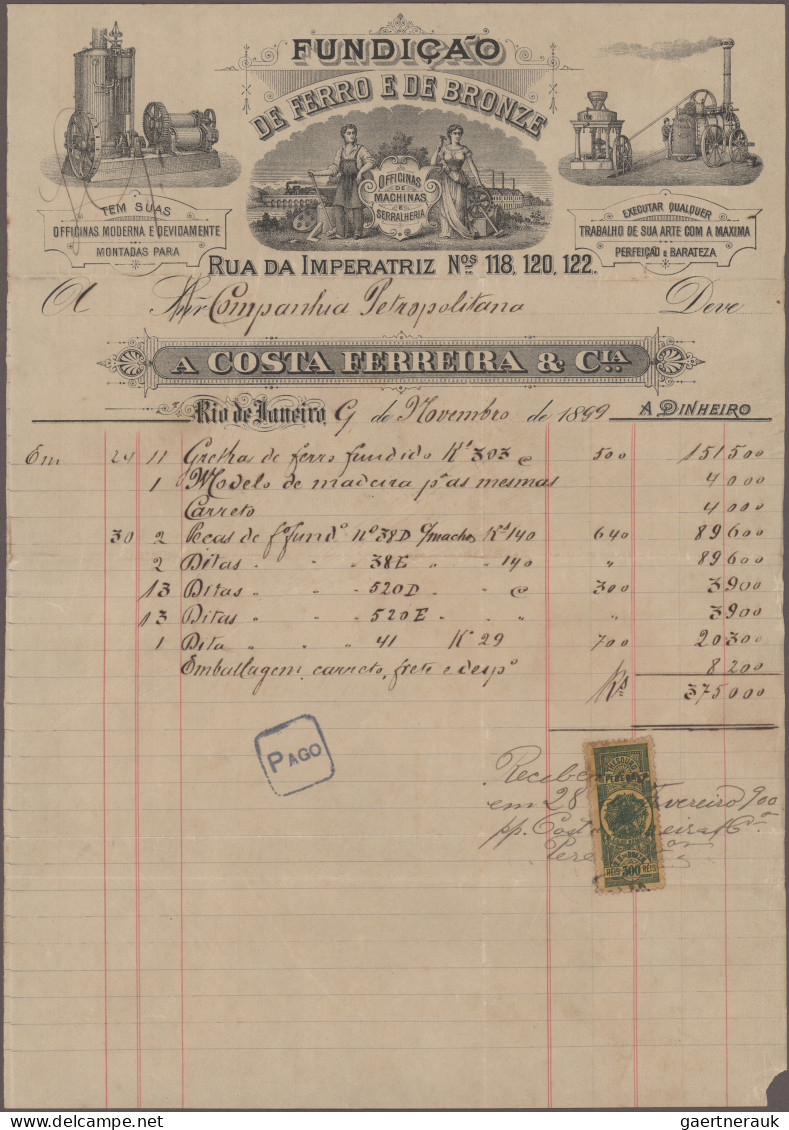 FUNDIÇÃO
DE FERRO E DE BRONZE
OFFICINAS
DE
MACHINAS
E
SERRALHERIA
TEM SUAS
OFFICINAS MODERNA E DEVIDAMENTE
MONTADAS PARA
EXECUTAR QUALQUER
TRABALHO DE SUA ARTE COM A MAXIMA
PERFEIÇÃO E BARATEZA
RUA DA IMPERATRIZ Nos 118, 120, 122.
A Companhia Petropolitana Deve
A COSTA FERREIRA & CIA
Rio de Janeiro, 9 de Novembro de 1899 A DINHEIRO
Em 24 11 Grelhas de ferro fundido Ks 303 c 500 151500
1 Modelo de madeira pa as mesmas 4000
Carreto 4000
30 2 Pecas de fo fundo No 38D c/machos Ks 140 640 89600
2 Ditas " " 38E " " 140 " 89600
13 Ditas " " 520D " c 300 3900
13 Ditas " " 520E " " " 3900
1 Dita " " 41 Ks 29 700 20300
Emballagem, carreto, frete e despo 8200
Rs 375000
PAGO
THESOURO
FEDERAL
Recebemos
em 28 Fevereiro 900
pp. Costa Ferreira & Ca
RÉIS 300 RÉIS
delcampe.net
gaertnerauk